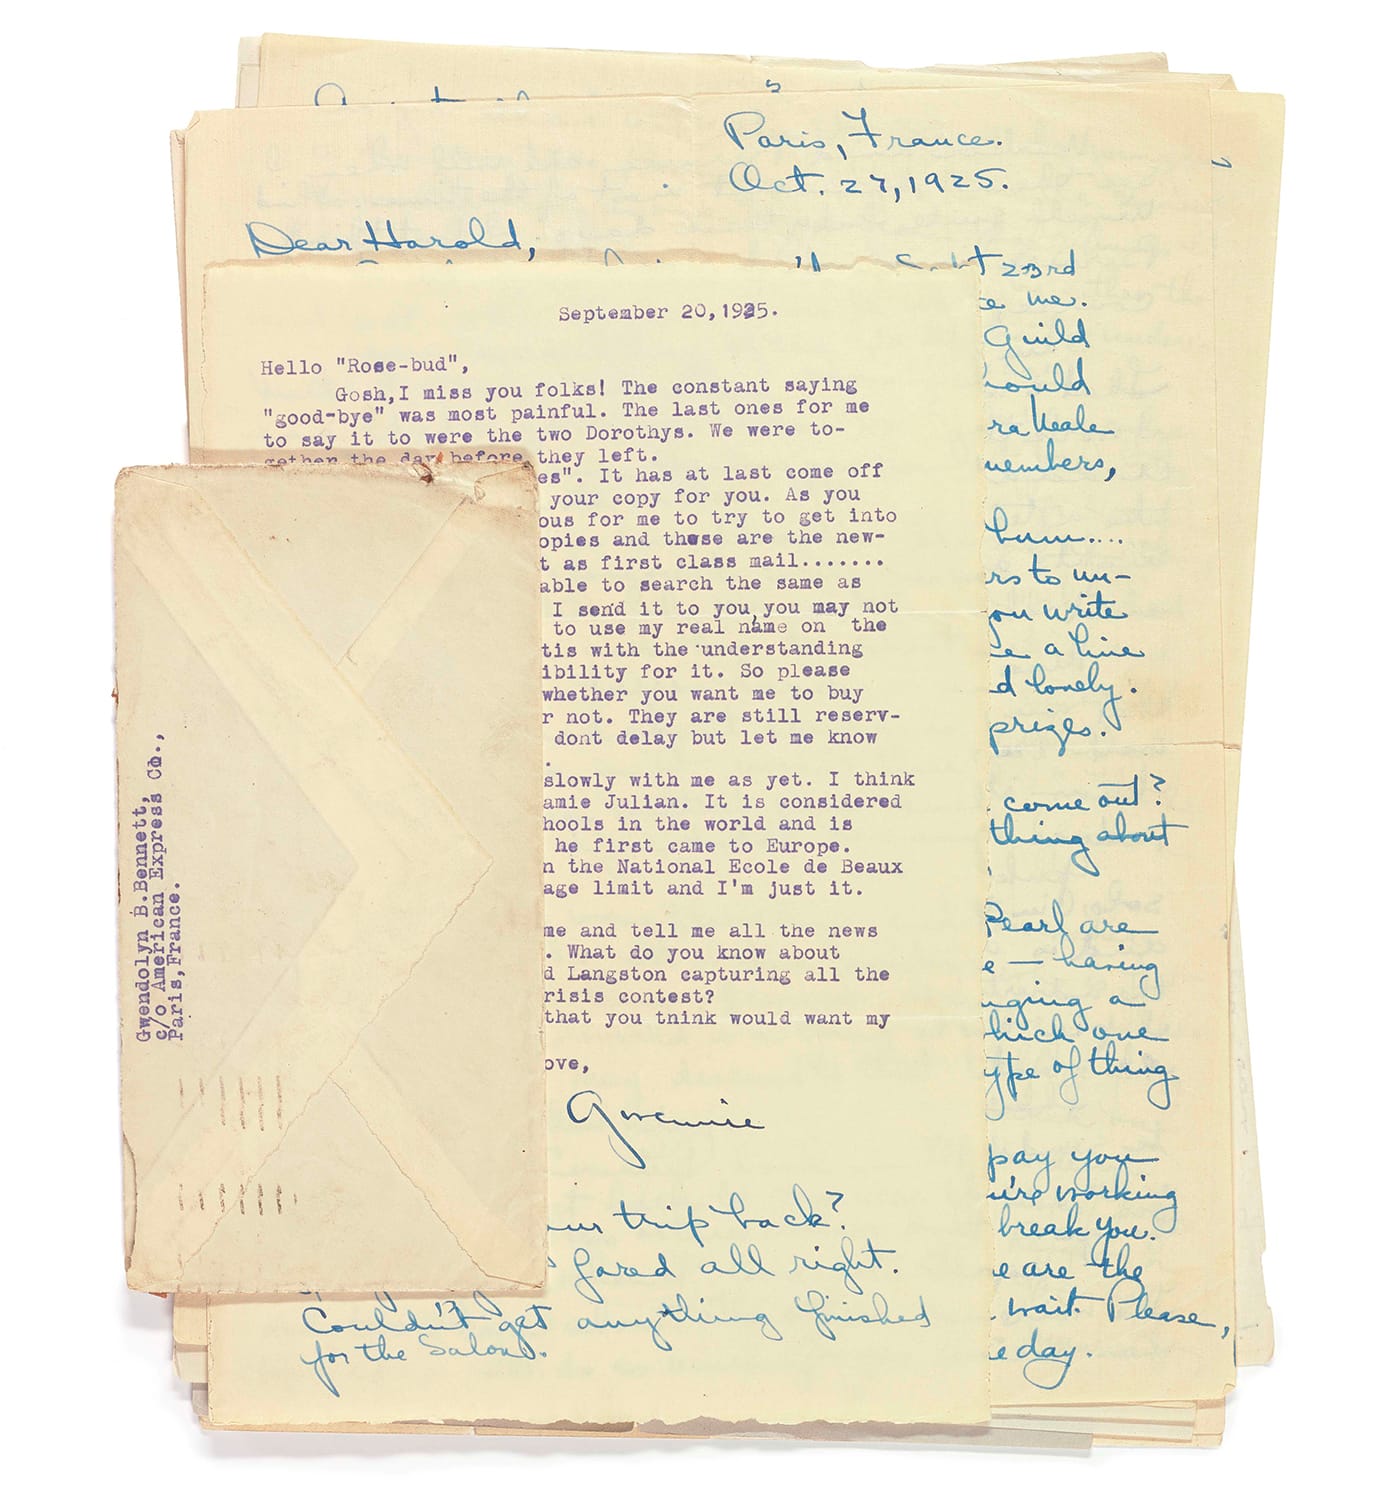 Paris, France.
Oct. 27, 1925.
Dear Harold,
23rd
me.
Guild
Neale
members,
bum....
to un-
you write
a line
lonely.
prizes.
come out?
thing about
Pearl are
— having
a
which one
type of thing
pay you
working
break you.
are the
wait. Please,
day.
September 20,1925.
Hello "Rose-bud",
Gosh,I miss you folks! The constant saying
"good-bye" was most painful. The last ones for me
to say it to were the two Dorothys. We were to-
gether the day before they left.
es". It has at last come off
your copy for you. As you
ous for me to try to get into
opies and these are the new-
t as first class mail.......
able to search the same as
I send it to you,you may not
to use my real name on the
tis with the understanding
ibility for it. So please
whether you want me to buy
r not. They are still reserv-
dont delay but let me know
.
slowly with me as yet. I think
amie Julian. It is considered
hools in the world and is
he first came to Europe.
n the National Ecole de Beaux
age limit and I'm just it.
me and tell me all the news
. What do you know about
d Langston capturing all the
risis contest?
that you tnink would want my
ove,
Gwennie
trip back?
fared all right.
Couldn't get anything finished
for the Salons.
Gwendolyn B.Bennett,
c/o American Express Co.,
Paris,France.